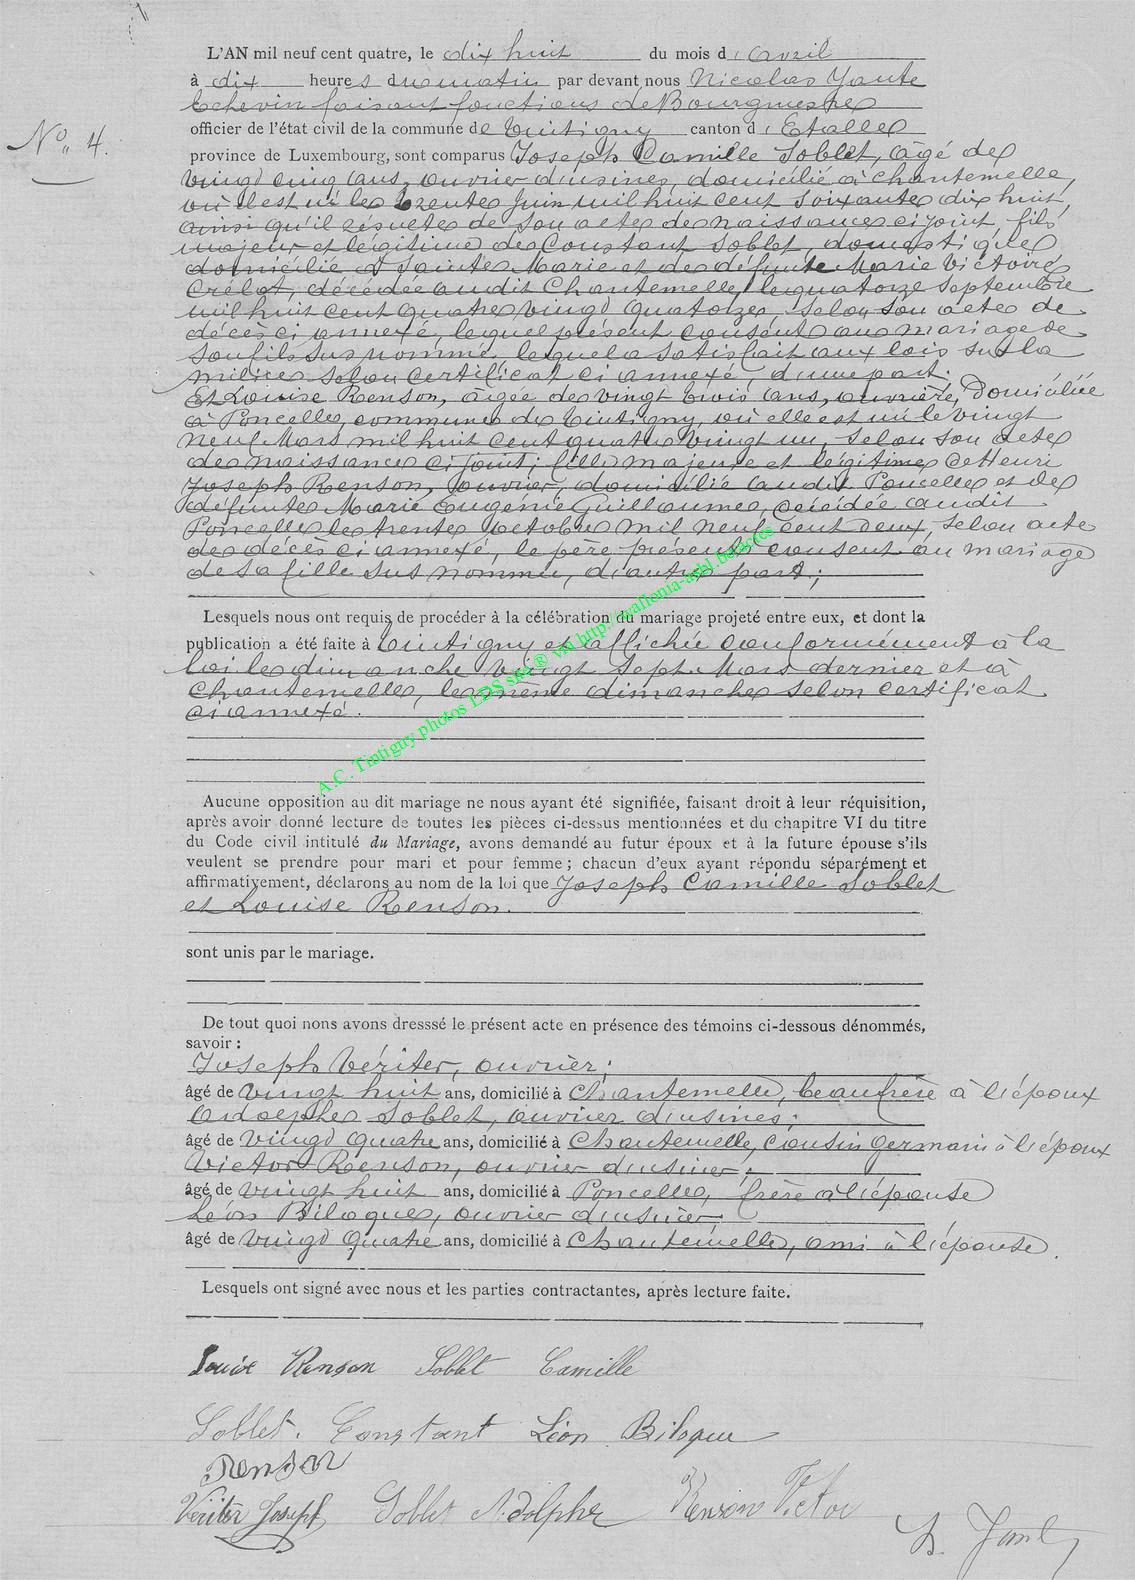 L'AN mil neuf cent quatre, le dix huit du mois d'avril
à dix heures du matin par devant nous Nicolas Yante
Echevin faisant fonctions de Bourgmestre
officier de l'état civil de la commune de Tintigny canton d'Etalle
N° 4.
province de Luxembourg, sont comparus Joseph Camille Soblet, âgé de
vingt cinq ans, ouvrier d'usines, domicilié à Chantemelle,
où il est né le trente Juin mil huit cent soixante dix huit,
ainsi qu'il résulte de son acte de naissance ci joint, fils
majeur et légitime de Constant Soblet, domestique
domicilié à Sainte Marie et de défunte Marie Victoire
Crélot, décédée audit Chantemelle, le quatorze Septembre
mil huit cent quatre vingt quatorze, selon son acte de
décès ci annexé, lequel présent consent au mariage de
son fils sus nommé, lequel a satisfait aux lois sur la
milice selon certificat ci annexé, d'une part.
Et Louise Renson, âgée de vingt trois ans, ouvrière, domiciliée
à Poncelle, commune de Tintigny, où elle est né le vingt
neuf Mars mil huit cent quatre vingt un, selon son acte
de naissance ci joint; fille majeure et légitime de Henri
Joseph Renson, ouvrier, domicilié audit Poncelle et de
défunte Marie Eugénie Guillaume, décédée audit
Poncelle le trente octobre mil neuf cent deux, selon acte
de décès ci annexé, le père présent consent au mariage
de sa fille sus nommée, d'autre part;
Lesquels nous ont requis de procéder à la célébration du mariage projeté entre eux, et dont la
publication a été faite à Tintigny et affichée conformément à la
loi le dimanche vingt sept Mars dernier et à
Chantemelle, le même dimanche selon certificat
ci annexé.
A.C. Tintigny photos LDS site ® via http://wallonia-asbl.be/actes
Aucune opposition au dit mariage ne nous ayant été signifiée, faisant droit à leur réquisition,
après avoir donné lecture de toutes les pièces ci-dessus mentionnées et du chapitre VI du titre
du Code civil intitulé du Mariage, avons demandé au futur époux et à la future épouse s'ils
veulent se prendre pour mari et pour femme ; chacun d'eux ayant répondu séparément et
affirmativement, déclarons au nom de la loi que Joseph Camille Soblet
et Louise Renson.
sont unis par le mariage.
De tout quoi nons avons dresssé le présent acte en présence des témoins ci-dessous dénommés,
savoir :
Joseph Vériter, ouvrier;
âgé de vingt huit ans, domicilié à Chantemelle, beaufrère à l'époux
Adolphe Soblet, ouvrier d'usines;
âgé de vingt quatre ans, domicilié à Chantemelle, cousin germain à l'époux
Victor Renson, ouvrier d'usine;
âgé de vingt huit ans, domicilié à Poncelle, frère à l'épouse
Léon Bilaque, ouvrier d'usine;
âgé de vingt quatre ans, domicilié à Chantemelle, ami à l'épouse.
Lesquels ont signé avec nous et les parties contractantes, après lecture faite.
Louise Renson Soblet Camille
Soblet. Constant Léon Bilaque
Renson
Vériter Joseph Soblet Adolphe Renson Victor
N. Yante